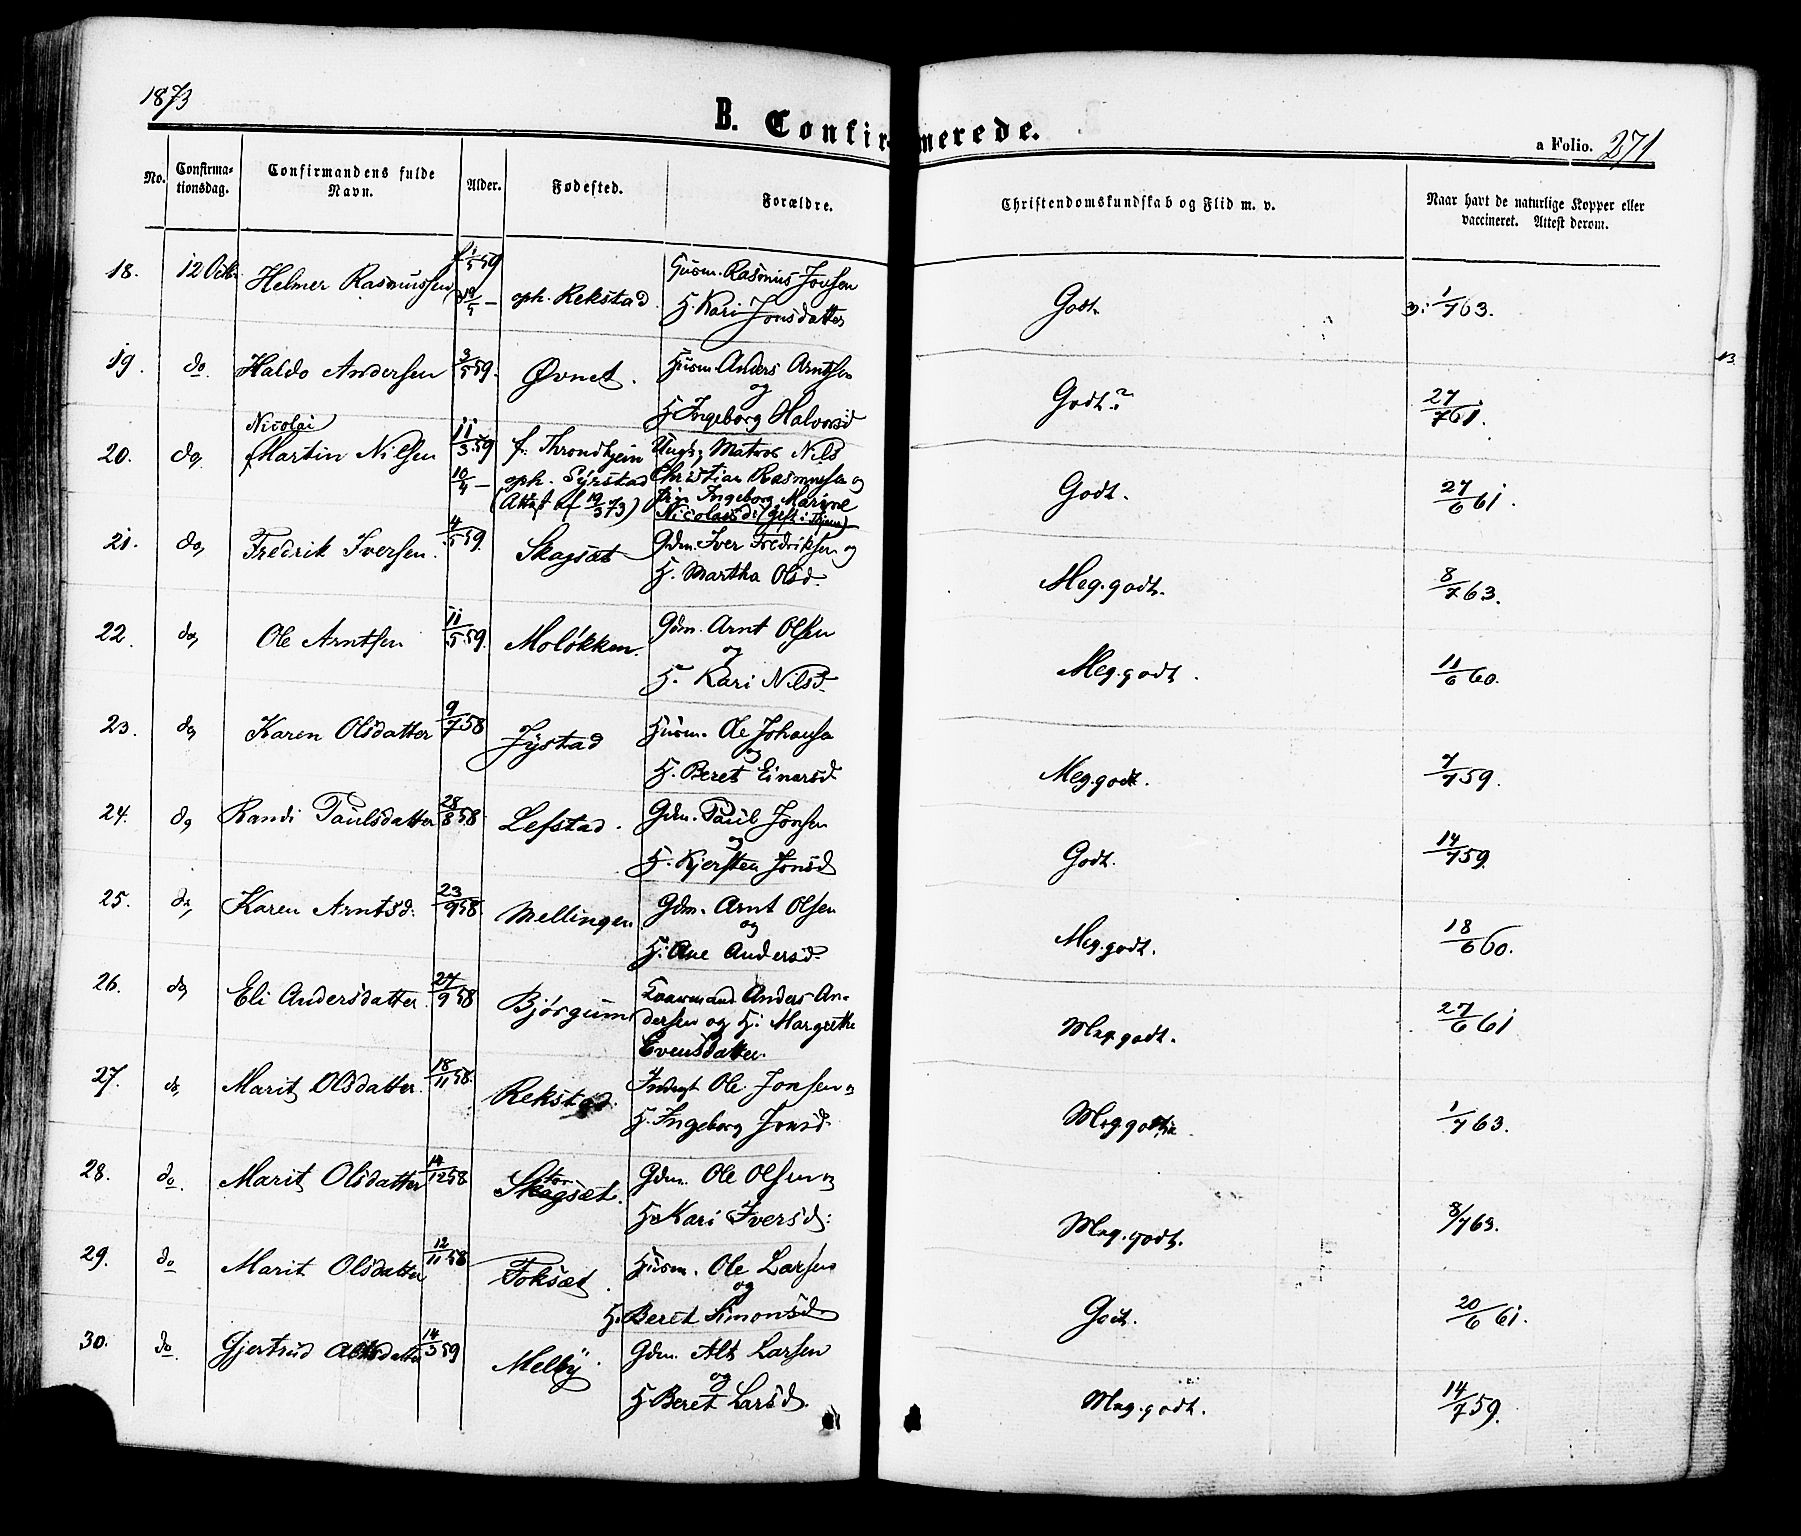 1873
B. Confirmerede.
a Folio. 271
No.
Confirma-
tionsdag.
Confirmandens fulde
Navn.
Alder.
Fødested.
Forældre.
Christendomskundskab og Flid m. v.
Naar havt de naturlige Kopper eller
vaccineret. Attest derom.
18. 12 Oct. Helmer Rasmussen f 1/5 59 Husm. Rasmus Jonsen
19/5 — oph. Rekstad H. Kari Jonsdatter Godt. 1/7 63.
19. do. Haldo Andersen 3/5 59. Øvnet. Husm. Anders Arntsen
og
H. Ingeborg Halvorsd Godt. 27/7 61.
Nicolai
20. do, Martin Nilsen 11/3 59 f. Throndhjem Ungk. Matros Nils
10/4 — oph. Syrstad Christian Rasmussen og
(Attest af 19/3 73) Ingeborg Marine
Nicolaisd. Godt. 27/6 61.
21. do, Fredrik Iversen. 4/5 59. Skagsæt Gdm. Iver Fredriksen og
H. Martha Olsd. Meg. godt. 8/7 63.
22. do, Ole Arntsen 11/5 59. Moløkken. Gdm. Arnt Olsen
og
H. Kari Nilsd. Meg. godt. 11/6 60.
23. do, Karen Olsdatter 9/7 58 Jystad Husm. Ole Johansen
og
H. Beret Einarsd. Meg. godt. 7/7 59.
24. do, Randi Paulsdatter 28/8 58 Lefstad. Gdm. Paul Jonsen
og
H. Kjersten Jonsd Godt. 14/7 59.
25. do, Karen Arntsd. 23/9 58. Mellingen Gdm. Arnt Olsen
og
H. Ane Andersd. Meg. godt. 18/6 60.
26. do, Eli Andersdatter. 24/9 58 Bjørgum Kaarmand Anders An-
dersen og H. Margrethe
Evensdatter. Meg. godt. 27/6 61
27. do, Marit Olsdatter. 18/11 58. Rekstad. Inderst Ole Jonsen og
H. Ingeborg Jonsd. Meg godt. 1/7 63.
28. do. Marit Olsdatter 14/12 58 Stor
Skagsæt. Gdm. Ole Olsen og
H. Kari Iversd: Meg. godt. 8/7 63.
29. do Marit Olsdatter 12/11 58 Foksæt. Husm. Ole Larsen
og
H. Beret Simonsd. Godt. 20/6 61.
30. do. Gjertrud Altsdatter 14/3 59 Melby. Gdm. Alt Larsen
og
H. Beret Larsd. Meg. godt. 14/7 59.